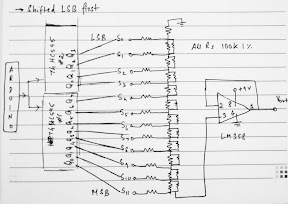 → Shifted LSB first
ARDUINO
74HC595
#2
74HC595
LSB
S0
S1
S2
S3
S4
S5
S6
S7
S8
S9
S10
S11
MSB
All Rs 100k 1%
+9V
Vout
LM358